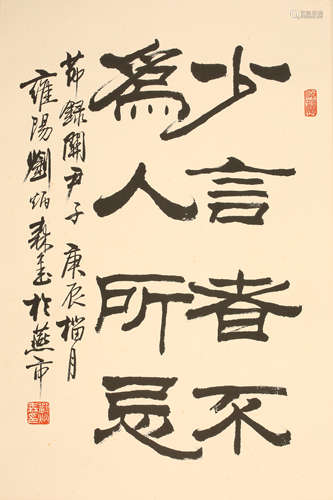 少言者不
為人所忌
節錄關尹子 庚辰榴月
雍陽劉炳森並於燕市